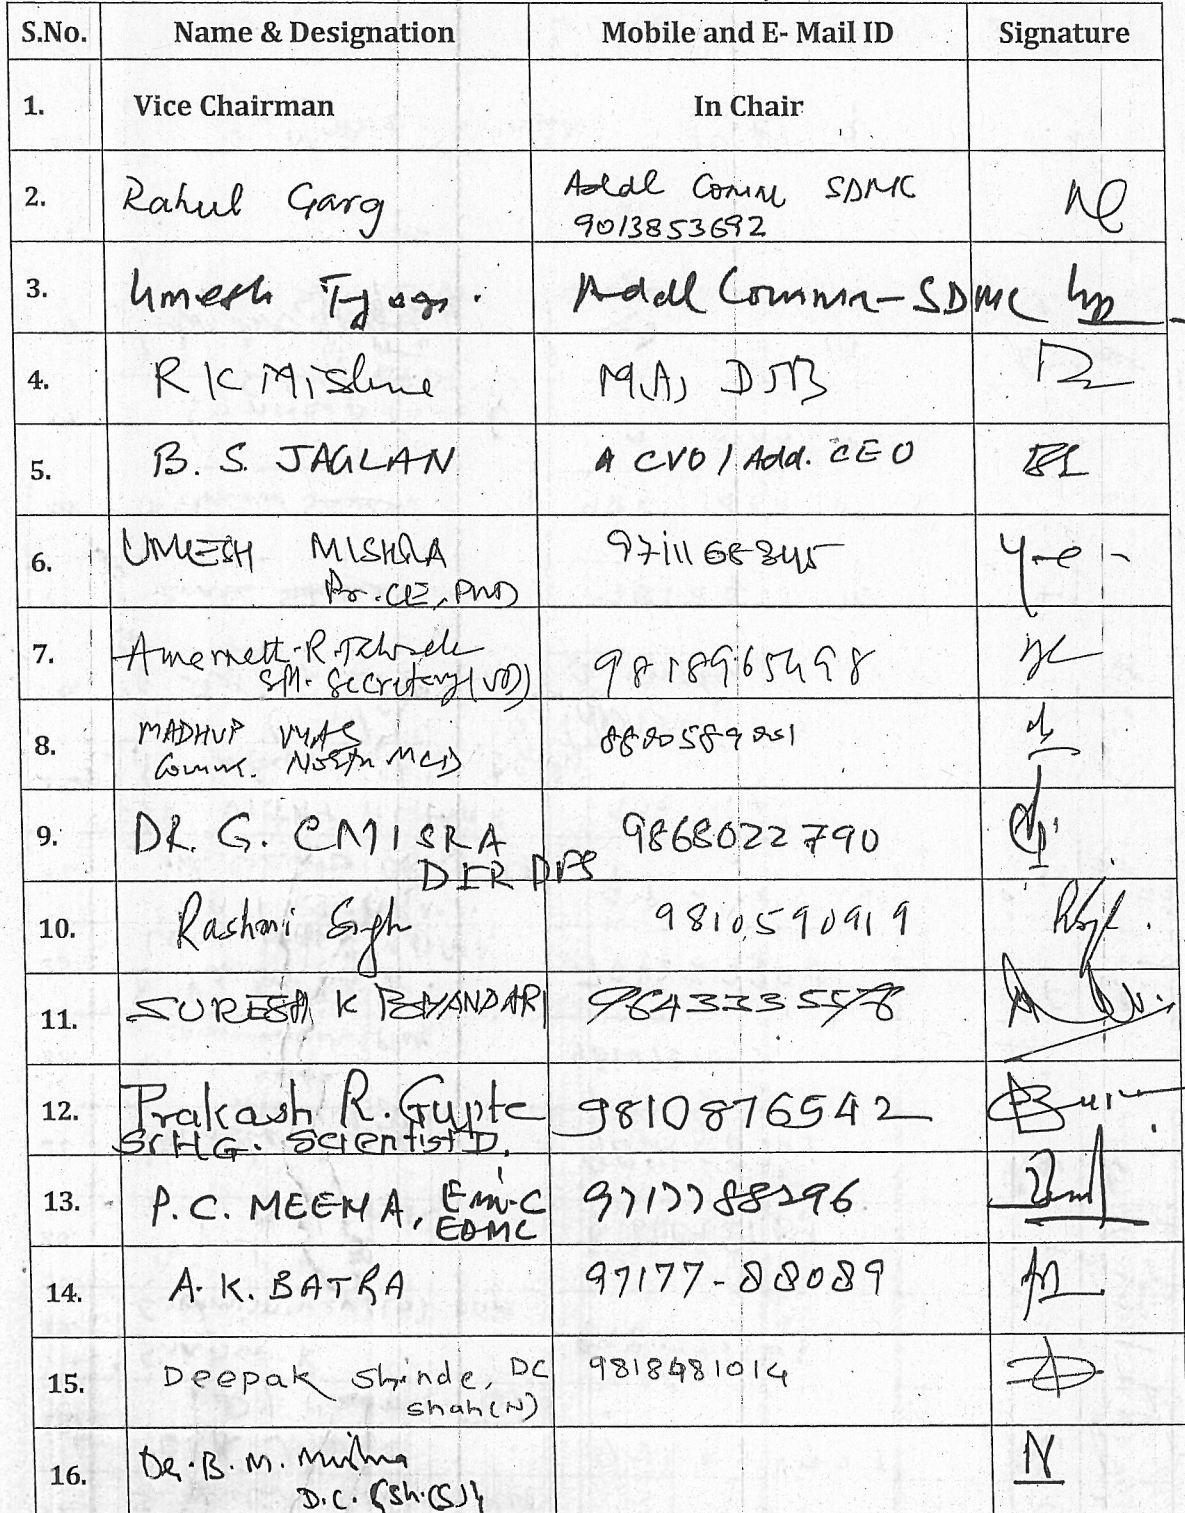 S.No. Name & Designation Mobile and E- Mail ID Signature
1. Vice Chairman In Chair
2. Rahul Garg Addl Comm SDMC
9013853692
3. Umesh Tyagi. Addl Comm - SDMC
4. R K Mishra M(A) DJB
5. B. S. JAGLAN ACVO / Add. CEO
6. UMESH MISHRA 9711168345
Pr. CE, PWD
7. R.
Spl. Secretary (UD) 9818965498
8. MADHUP VYAS
Comm. North MCD
9. DR. G. C MISRA 9868022790
DIR DFS
10. Rashmi Singh 9810590919
11. SURESH K BHANDARI
12. Prakash R. Gupte 9810876542
Scientist D.
13. P.C. MEENA, E-in-C 9717788296
EDMC
14. A. K. BATRA 97177-88089
15. Deepak Shinde, DC 9818481014
Shah (N)
16. Dr. B. M. Mishra
D.C. (Sh.(S))